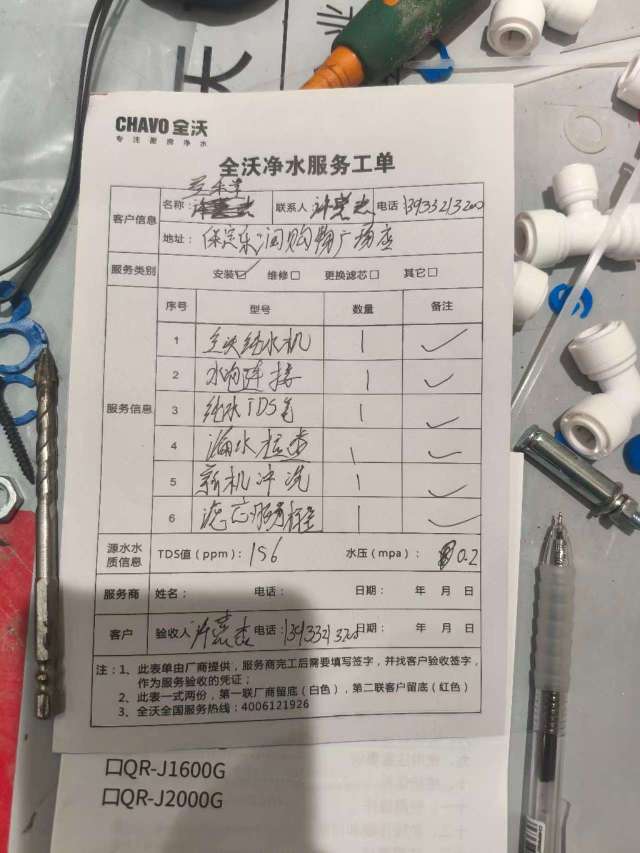 CHAVO 全沃
专注厨房净水
全沃净水服务工单
客户信息
名称: 联系人 电话 13933213200
地址: 保定乐润购物广场店
服务类别 安装☑ 维修□ 更换滤芯□ 其它□
服务信息
序号 型号 数量 备注
1 全沃纯水机 1 ✓
2 水电连接 1 ✓
3 纯水TDS 1 ✓
4 漏水检查 1 ✓
5 新机冲洗 1 ✓
6 滤芯 1 ✓
源水水质信息 TDS值（ppm）: 156 水压（mpa）: 0.2
服务商 姓名: 电话: 日期: 年 月 日
客户 验收人 电话: 日期: 年 月 日
注: 1、此表单由厂商提供，服务商完工后需要填写签字，并找客户验收签字，
作为服务验收的凭证；
2、此表一式两份，第一联厂商留底（白色），第二联客户留底（红色）
3、全沃全国服务热线: 4006121926
口QR-J1600G
口QR-J2000G